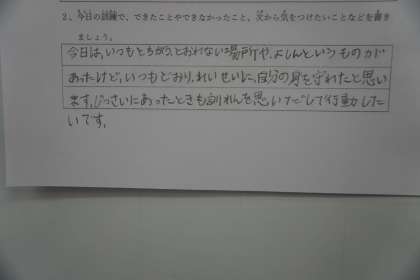 2、今日の訓練で、できたことやできなかったこと、次から気をつけたいことなどを書き
ましょう。
今日は、いつもとちがう、とおれない場所や、よしんというものがが
あったけど、いつもどおり、れいせいに、自分の身を守れたと思い
ます。じっさいにあったときも訓れんを思いだして行動した
いです。